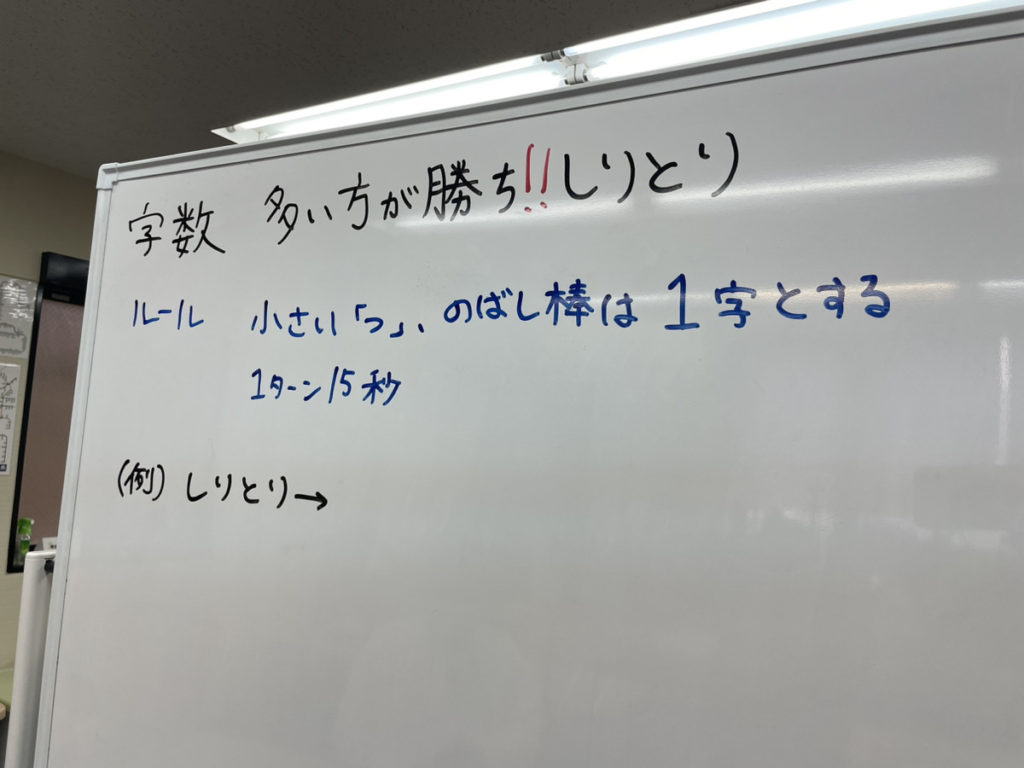 字数 多い方が勝ち!!しりとり
ルール 小さい「っ」、のばし棒は 1字とする
1ターン15秒
(例) しりとり→